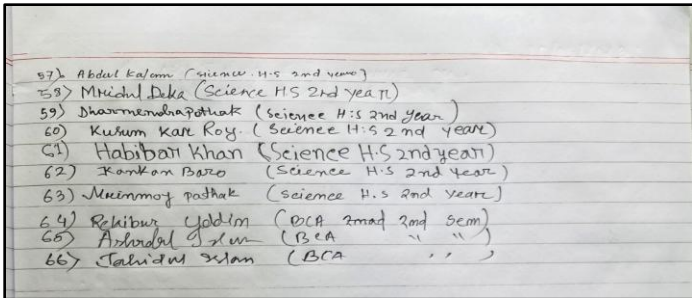 57) Abdul Kalam (Science H.S 2nd year)
58) Mridul Deka (Science HS 2nd year)
59) Dharmendra Pathak (Science H.S 2nd year)
60) Kusum Kar Roy. (Science H.S 2nd year)
61) Habibar Khan (Science H.S 2nd year)
62) Kankan Baro (Science H.S 2nd year)
63) Mrinmoy pathak (Science H.S 2nd year)
64) Rehibur Uddin (BCA 2nd Sem)
65) (BCA " ")
66) Jahidul Islam (BCA , , )